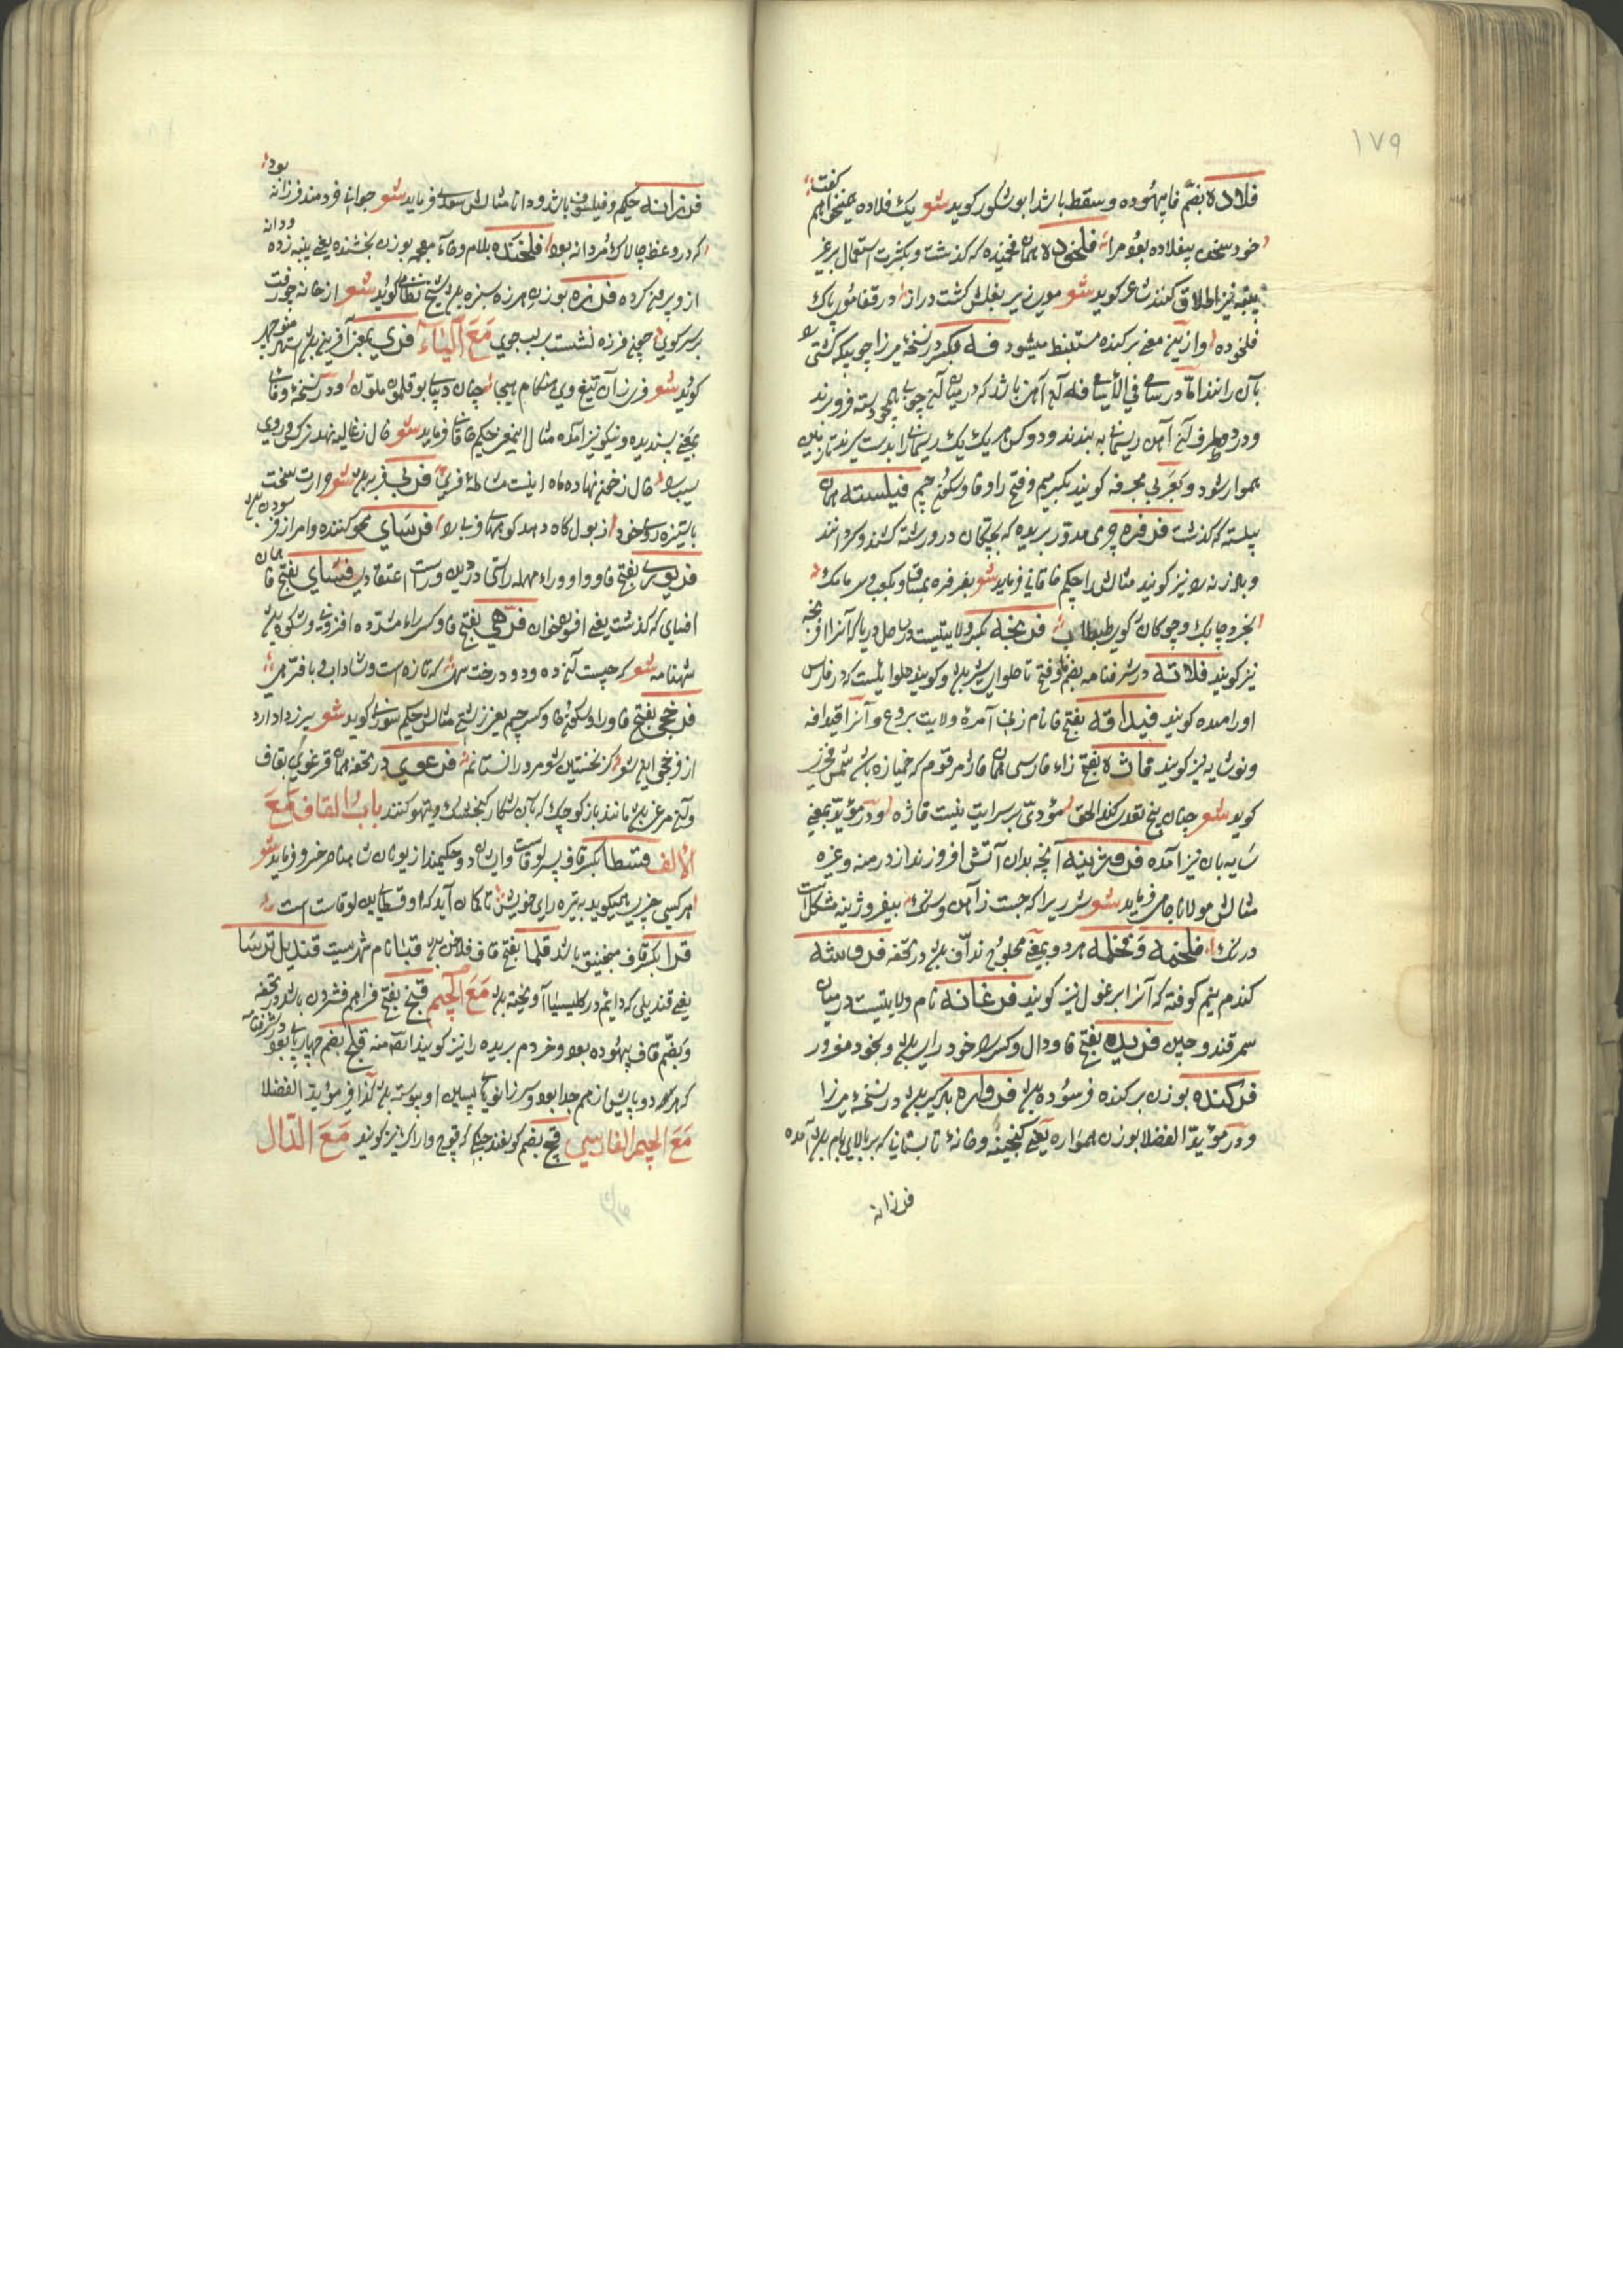 ۱۷۹
فلاده بضم فا بیهوده و سقط باشد ابو شکور کوید شعو یک فلاده همی نخواهم کفت
خود سخن بیفلاده بود مرا فلخوده همان فلخیده که کذشت و بکثرت استعمال بر غیر
پنبه نیز اطلاق کنند شاعر کوید شعو موی زیر بغلش کشت دراز در قفا موی پاک
فلخوده و ازین معنی برکنده مستنبط میشود فه بکسر در نسخه میرزا چوبیکه کشتی را
بآن رانند اما در سامی فی الأسامی فه آن آهن باشد که در میان آن چوبی دسته فرو برند
و در دو طرف آن آهن ریسمانی به بندند و دو کس هر یک یک ریسمانرا بدست کیرند تا زمین
هموار شود و بعربی مجرفه کویند بکسر میم و فتح را و فا و سکون جیم فیلسته همان
پیلسته که کذشت فرفره چرمی مدور بریده که بچکان در و رشته کشند و کردانند
و باد زنه را نیز کویند مثالش را حکیم خاقانی فرماید شعو بفرفره بمشاق و بکعب و سرمامک
بخر و چابک و چوکان کوی طبطاب فرنجه بکسر ولایتیست در ساحل دریا که آنرا افرنجه
نیز کویند فلاته در شرفنامه بضم و فتح تا حلوای شیر بود و کویند حلوائیست که در فارس
اورامده کویند فیداقه بفتح فا نام زنی آمرهٔ ولایت بردع و آنرا قیدافه
و نوشابه نیز کویند فاژه بفتح زاء فارسی همان فاژ مرقوم که خمیازه باشد شمس فخری
کوید شعو جنان بنخ تقدس کند الحق مؤدی بر سرایت نیست فاژه و در مؤید بمعنی
سایه بان نیز آمده فروزینه آنچه بدان آتش افروزند از درمنه و غیره
مثالش مولانا جامی فرماید شعو شرریرا که جست ز آهن و سنک بیفروزینه مشکلست
درنک فلخمه و فخلمه هر دو بمعنی محلوج نداف بود در تحفه فروشه
کندم نیم کوفته که آنرا برغول نیز کویند فرغانه نام ولایتیست در میان
سمرقند و چین فریده بفتح فا و دال و کسر را خود رای بود و بخود مغرور
فرکنده بوزن برکنده فرسوده بود فرواره بادکیر بود در نسخه میرزا
و در مؤید الفضلا بوزن همواره یعنی کنجینه و خانهٔ تابستانی که بر بالای بام بود آمده
فرزانه
فرزانه حکیم و فیلسوف باشد و دانا مثالش سعدی فرماید شعو جوانی خردمند فرزانه بود
که در وعظ چالاک و مردانه بود فلخنده بلام و خاء معجمه بوزن بخشنده یعنی پنبه زده و دانه
ازو بیرون کرده فرزه بوزن هرزه سبزه بود شیخ نظامی کوید شعو از خانه چو رفت
بر سر کوی چون فرزه نشست بر لب جوی مَعَ الیَاء فری بمعنی آفرین بود منوچهر
کوید شعو فری زان تیغ وی هنکام هیجا چنان دیبای بوقلمون ملون و در نسخهٔ وفائی
بمعنی پسندیده و نیکو نیز آمده مثال اینمعنی حکیم خاقانی فرماید شعو خال ز غالیه نهد هر کس و روی
سیب را خال ز خون نهاده ماه اینست مشاطهٔ فری فربی فربه بود شعو وارت سخت
باستیزه روی خود از بول کاه دهد کوهی فربی را فرسای محو کننده و امر از فرسودن بود
فریوری بفتح فا و واو و راء مهمله راستی در دین و درست اعتقادی فسای بفتح فا همان
افسای که کذشت یعنی افسون خوان فرهی بفتح فا و کسر راء مشدده افزونی و شکوه بود
شهنامه شعو که چیست آن ده و دو درخت سهی که تازه است و شاداب و با فرهی
فرخجی بفتح فا و را و سکون خا و کسر جیم یعنی زشتی مثالش حکیم سوزنی کوید شعو پیرزنی داد دارد
از فرخجی ابلی شو کز نخستین شو مرد را نستانم فرغوی در تحفه همان قرغوی بقاف
و آن مرغی بود مانند باز کوچک که بآن شکار کنجشک و تیهو کنند بابُ القاف مَعَ
الألف قسطا بکسر قاف پسر لوقاست و ایشان دو حکیمند از یونان شاه ناصر خسرو فرماید شعو
هر کسی چیزی همیکوید به تیره رای خویش تا کمان آید که او قسطای بن لوقاست
قرا بکسر قاف منجنیق باشد قلما بفتح قاف فلاخن بود قبا نام شهریست قندیل ترسا
یعنی قندیلی که دائم در کلیسیا آویخته بود مَعَ الجیم قبج بفتح فراهم فشردن باشد در تحفه
و بضم قاف بیهوده بود و خر دم بریده را نیز کویند ایضا منه قلج بضم چهارپائی بود در شرفنامه
که هر دو پایش از هم جدا بود و سر زانوی پسین او پیوسته بود کذا فی مؤید الفضلا
مَعَ الجیم الفارسی قچ بضم کوسفند جنکی که قوچ و اراک نیز کویند مَعَ الدّال